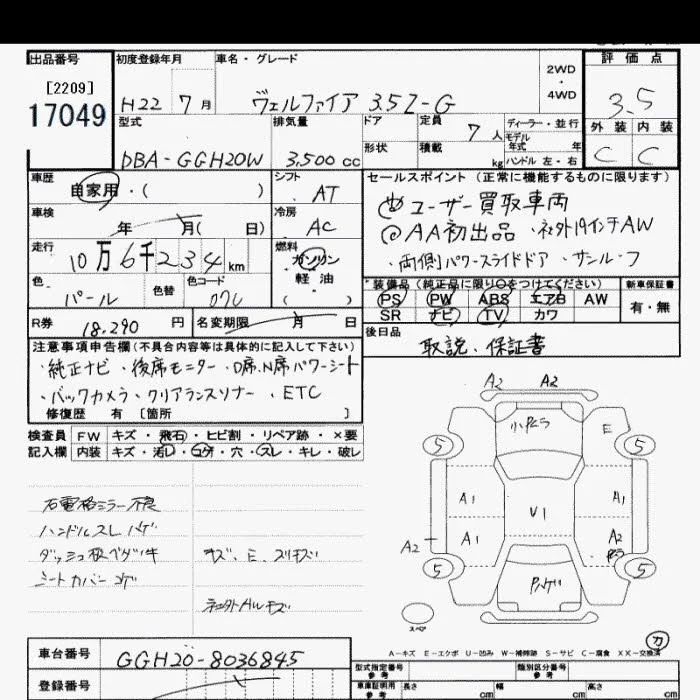 出品番号
[2209]
17049
初度登録年月
H22 7月
車名・グレード
ヴェルファイア 3.5Z-G
2WD
・
4WD
評価点
3.5
型式
DBA-GGH20W
排気量
3,500 cc
ドア
形状
定員
7人
積載
kg
ディーラー・並行
モデル
年式 年
ハンドル 左・右
外装 内装
C C
車歴
自家用・( )
シフト
AT
車検
年 月( 日)
冷房
AC
走行
10万6千234 km
燃料
ガソリン
軽油
( )
色
パール
色替
色コード
070
R券
18,290 円
名変期限 月 日
セールスポイント(正常に機能するものに限ります)
ユーザー買取車両
◎AA初出品・社外19インチAW
・両側パワースライドドア・サンルーフ
*装備品(純正品に限り○をつけてください)
PS PW ABS エアB AW
SR ナビ TV カワ
新車保証書
有・無
後日品
取説、保証書
注意事項申告欄(不具合内容等は具体的に記入して下さい)
・純正ナビ・後席モニター・D席、N席パワーシート
・バックカメラ・クリアランスソナー、ETC
修復歴 有 [箇所 ]
検査員
記入欄
FW キズ・飛石・ヒビ割・リペア跡・×要
内装 キズ・汚レ・コゲ・穴・スレ・キレ・破レ
右電格ミラー不良
ハンドルスレ ハゲ
シートカバー コゲ
キズ、E、スリキズ
社外AWキズ
A2 A2
小飛ラ
E
5 5
A1 A1
V1
A1 A2
A2
5 5
ハゲ
スペア
カ
A-キズ E-エクボ U-凹み W-補修跡 S-サビ C-腐食 XX-交換済
車台番号
GGH20-8036845
登録番号
型式指定番号
参考
類別区分番号
参考
車庫証明用
参考
長さ cm
幅 cm
高さ cm